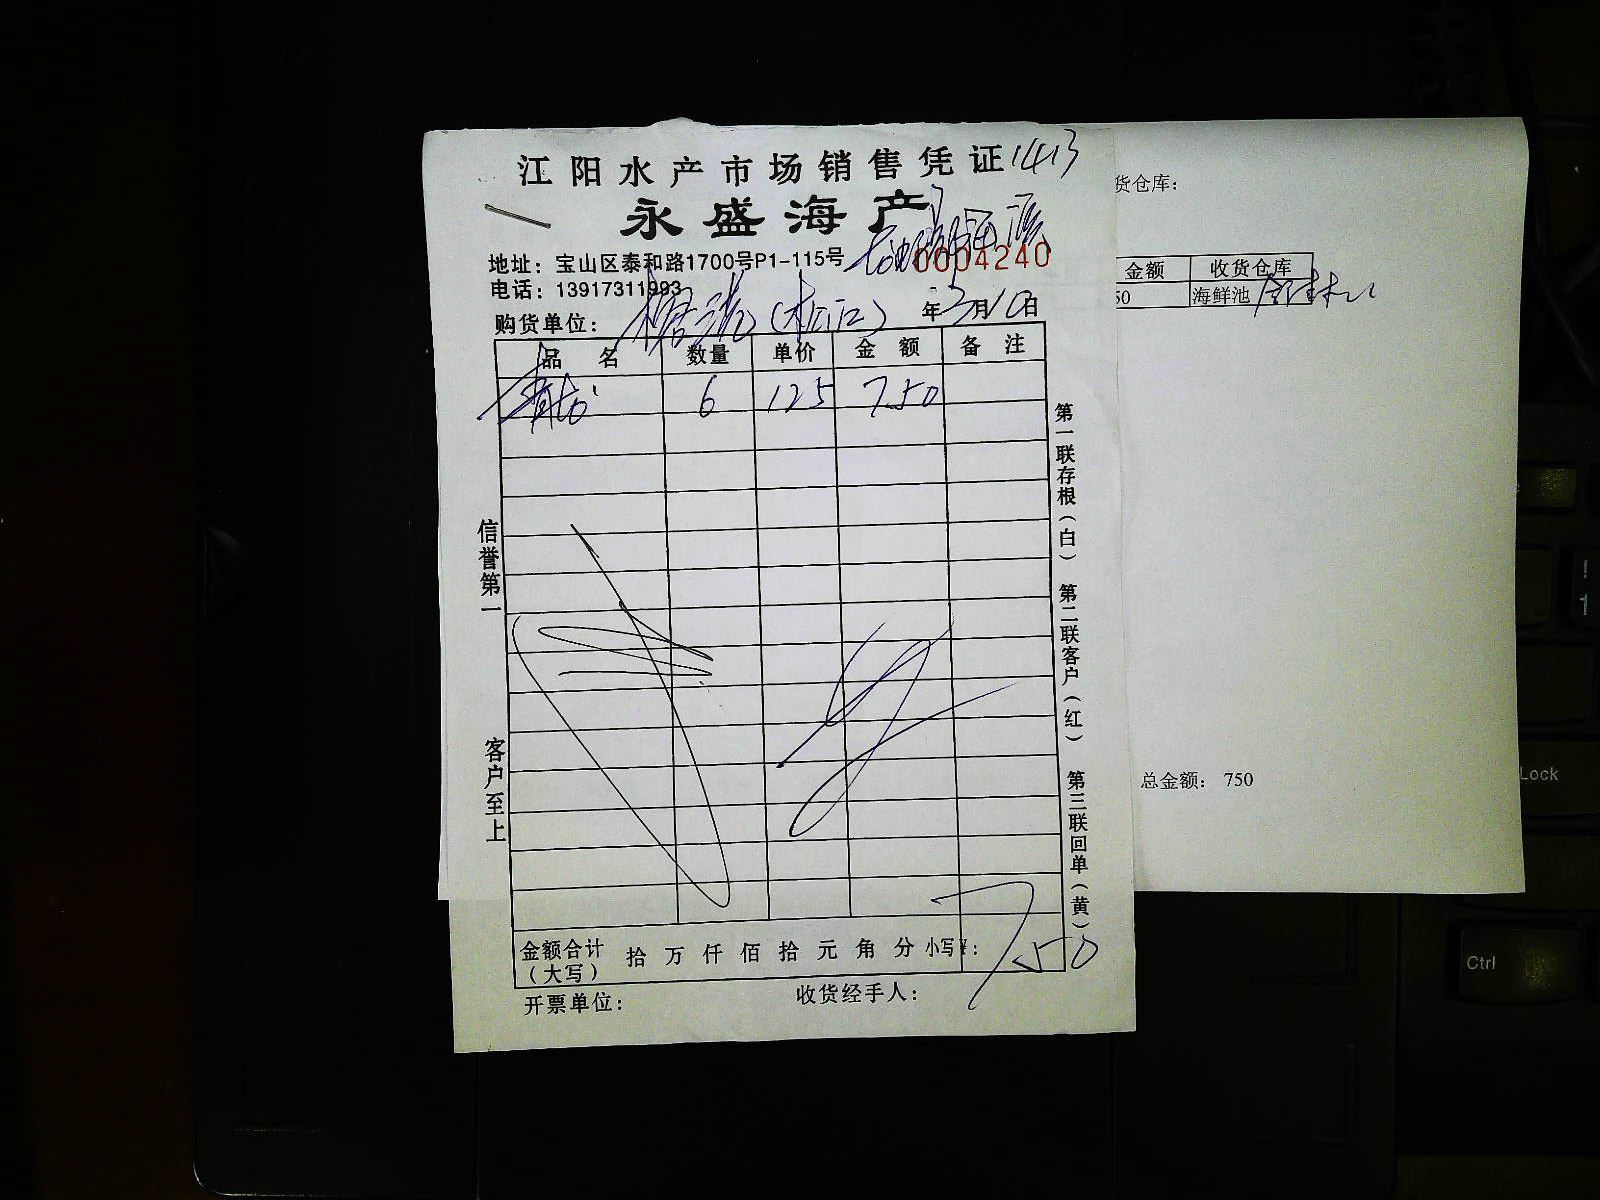 江阳水产市场销售凭证 1413
永盛海产
地址：宝山区泰和路1700号P1-115号
0004240
电话：13917311993
购货单位：(松江) 年3月10日
品名 数量 单价 金额 备注
青龙 6 125 750
第一联存根(白) 第二联客户(红) 第三联回单(黄)
信誉第一 客户至上
金额合计(大写) 拾 万 仟 佰 拾 元 角 分 小写¥: 750
开票单位： 收货经手人：
货仓库：
金额 收货仓库
50 海鲜池
总金额： 750
Lock
Ctrl